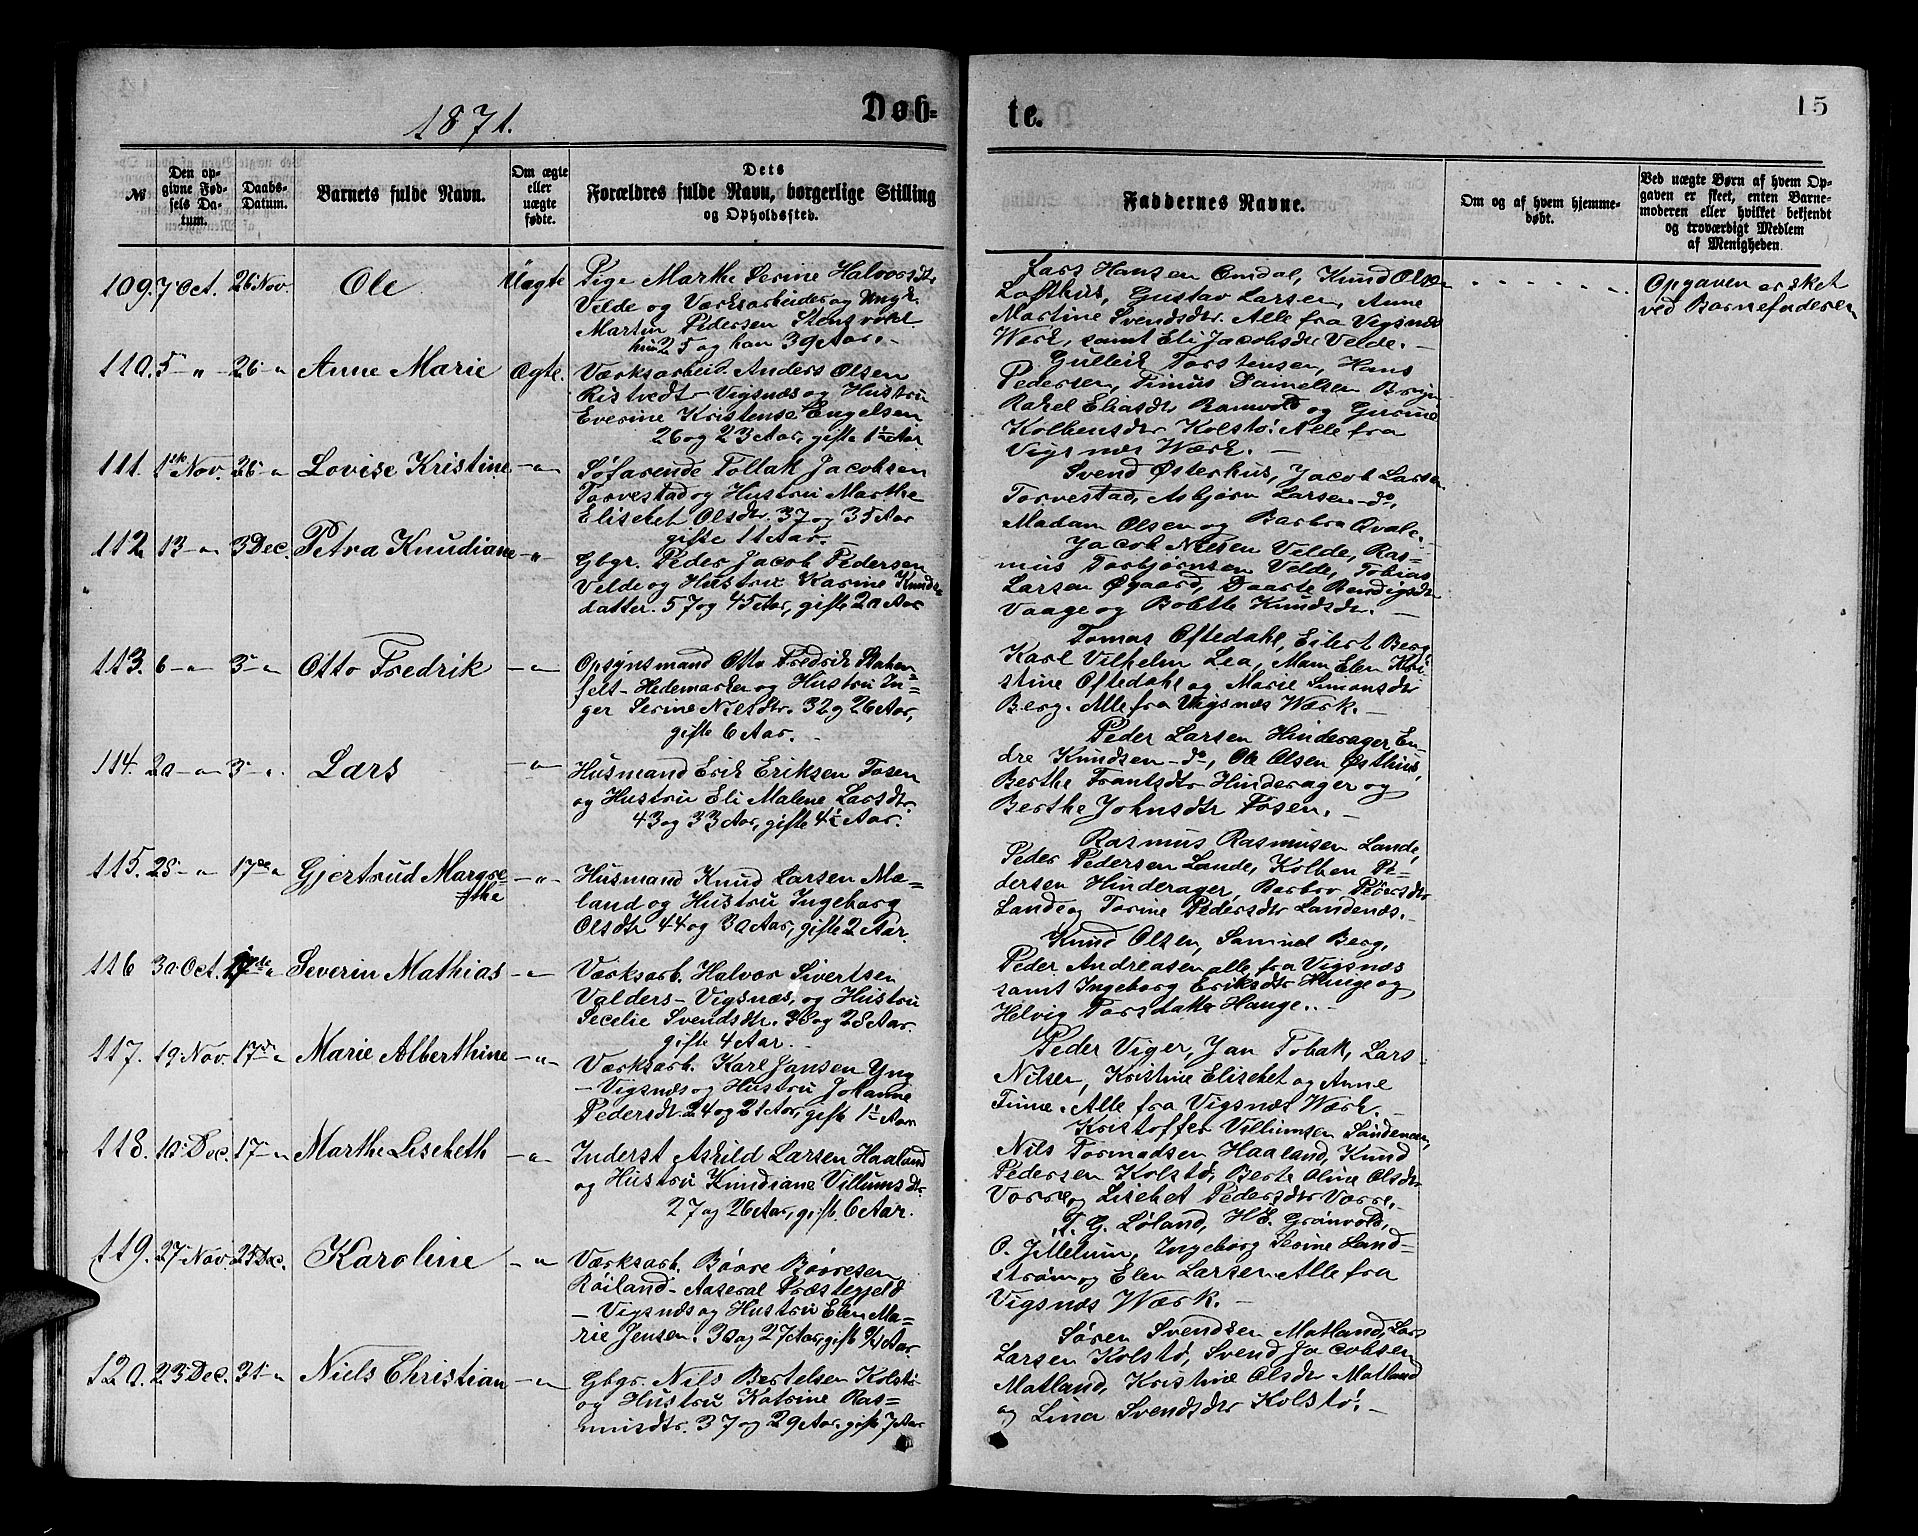 1871.
Døb-
te.
15
№
Den op-
givne Fød-
sels Da-
tum.
Daabs-
Datum.
Barnets fulde Navn.
Om ægte
eller
uægte
fødte.
Dets
Forældres fulde Navn, borgerlige Stilling
og Opholdssted.
Faddernes Navne.
Om og af hvem hjemme-
døbt.
Ved uægte Børn af hvem Op-
gaven er skeet, enten Barne-
moderen eller hvilket bekjendt
og troværdigt Medlem
af Menigheden.
109. 7 Oct. 26 Nov. Ole Uægte
Pige Marthe Serine Halvorsdtr
Velde og Værksarbeider og Ungk.
Martin Pedersen Stensvold
hun 25 og han 39 Aar. -
Lars Hansen Omdal, Knud Olsen
Lofthus, Gustav Larsen, Anne
Martine Svendsdtr. Alle fra Vigsnæs
Værk, samt Eli Jacobsdtr Velde. -
Opgaven er sket
ved Barnefaderen
110. 5 - " - 26 - " Anne Marie Ægte.
Værksarbeid. Anders Olsen
Ristvedt - Vigsnæs og Hustru
Everine Kristense Engelsen
26 og 23 Aar, gifte 1½ Aar
Gullik Torstensen, Hans
Pedersen, Finus Danielsen Bryn
Rakel Eliasdtr og Gurine
Kolbensdtr Kolstø. Alle fra
Vigsnæs Værk. -
111. 1ste Nov. 26 - " Lovise Kristine - " -
Søfarende Tollak Jacobsen
Torvestad og Hustru Marthe
Elisebet Olsdtr. 37 og 35 Aar
gifte 11 Aar. -
Svend Østerhus, Jacob Larsen
Torvestad, Asbjørn Larsen - do,
Madam Olsen og Barbra Qvale. -
112. 13 - " 3 Dec. Petra Knudiane - " -
Gbgr. Peder Jacob Pedersen
Velde og Hustru Karine Knuds-
datter. 57 og 45 Aar, gifte 20 Aar
Jacob Nilsen Velde, Ras-
mus Torbjørnsen Velde, Tobias
Larsen Øgaard, Daarte Bendigsdtr
Vaage og Bolette Knudsdtr. -
113. 6 - " 3 - " Otto Fredrik - " -
Opsynsmand Otto Fredrik
- Hedemarken og Hustru In-
ger Serine Nilsdtr. 32 og 26 Aar,
gifte 6 Aar. -
Tomas Oftedahl, Eilert Berg
Karl Vilhelm Lea, Mam Elen Kri-
stine Oftedahl og Marie Simonsdtr
Berg. Alle fra Vigsnæs Værk. -
114. 20 - " 3 - " Lars - " -
Husmand Erik Eriksen Fosen
og Hustru Eli Malene Larsdtr
43 og 33 Aar, gifte 4½ Aar.
Peder Larsen Hinderager En-
dre Knudsen - do, Ole Olsen Østhus,
Berthe Frantsdtr Hinderager og
Berthe Johnsdtr Fosen. -
115. 28 - " 17de " Gjertrud Margre-
the - " -
Husmand Knud Larsen Mæ-
land og Hustru Ingeborg
Olsdtr 44 og 30 Aar, gifte 2 Aar.
Rasmus Rasmusen Lande,
Peder Pedersen Lande, Kolben Pe-
dersen Hinderager, Barbro
Lande og Torine Pedersdtr Landenæs. -
116 30 Oct. 17de " Severin Mathias - " -
Værksarb. Halvor Sivertsen
Valders - Vigsnæs, og Hustru
Secelie Svendsdtr. 38 og 28 Aar.
gifte 4 Aar. -
Knud Olsen, Samuel Berg,
Peder Andreasen alle fra Vigsnæs
samt Ingeborg Eriksdtr Hauge og
Helvig Torsdatter Hauge. -
117. 19 Nov. 17de " Marie Alberthine - " -
Værksarb. Karl Jansen Yng
- Vigsnæs og Hustru Johanne
Pedersdtr. 24 og 21 Aar, gift 1½ Aar
Peder Viger, Jan Tobak, Lars
Nilsen, Kristine Elisebet og Anne
Finne. Alle fra Vigsnæs Værk. -
118. 10 Dec. 17 - " Marthe Lisebeth - " -
Inderst Askild Larsen Haaland
og Hustru Knudiane Villumsdtr.
27 og 26 Aar, gift 6 Aar.
Kristoffer Villumsen
Nils Tormodsen Haaland, Knud
Pedersen Kolstø, Berte Oline Olsdtr
Vorre og Lisebet Pedersdtr Vorre. -
119. 27 Nov. 25 Dec. Karoline - " -
Værksarb. Børre Børresen
Røiland - Aaseral Præstegjeld
- Vigsnæs og Hustru Elen Ma-
rie Jensen. 30 og 27 Aar, gift Aar.
T. G. Løland, H.E. Grønvold,
O. Jillelum, Ingeborg Serine Land-
strøm og Elen Larsen. Alle fra
Vigsnæs Værk. -
120. 23 Dec. 31 - " Niels Christian - " -
Gbgr. Nils Bertelsen Kolstø
og Hustru Katrine Ras-
musdtr. 37 og 29 Aar. gift 7 Aar
Søren Svendsen Matland, Lars
Larsen Kolstø, Svend Jacobsen
Matland, Kristine Olsdtr Matland
og Lina Svendsdtr Kolstø. -